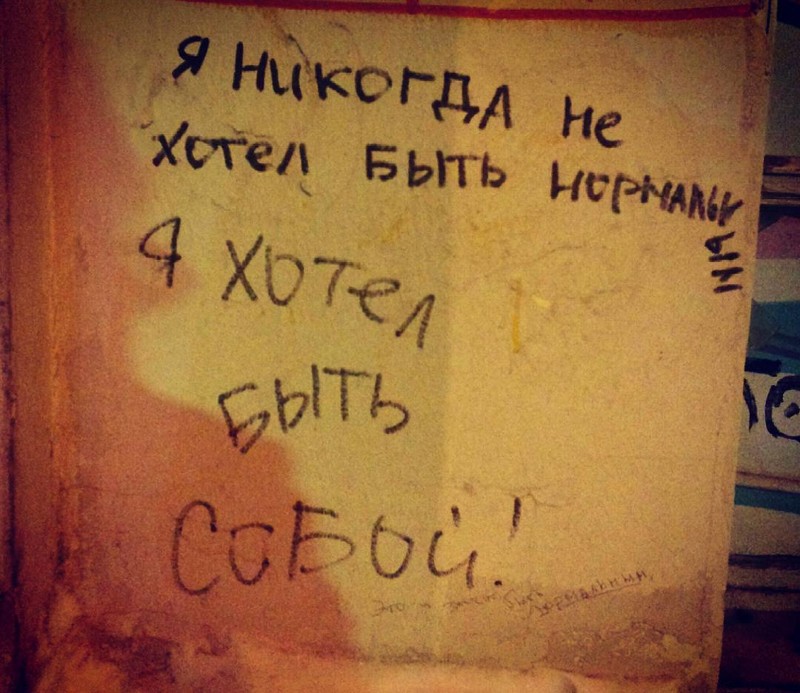 Я НИКОГДА Не
ХОТеЛ БЫТЬ НОРМАЛЬНЫМ
Я ХОТеЛ
БЫТЬ
СОБОЙ!
Это и значит быть нормальным